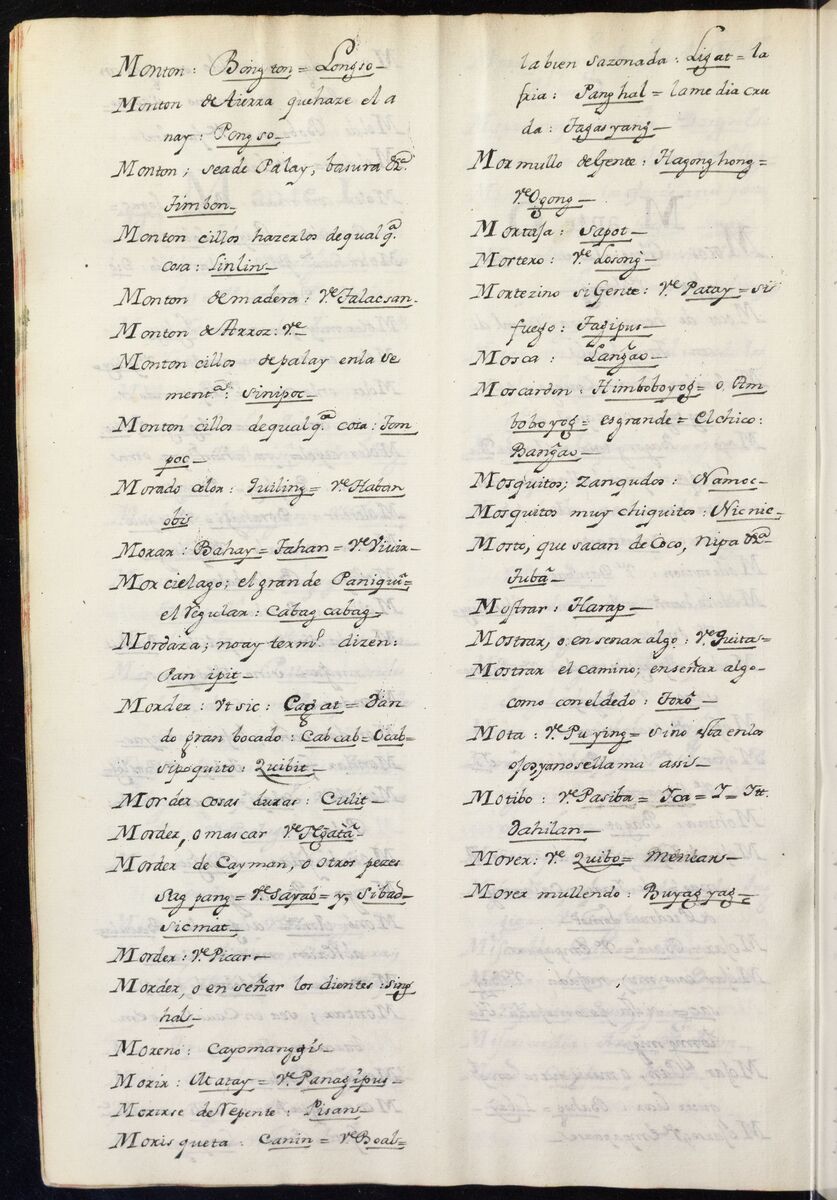 Monton: Bongton= Longso_
Monton de tierra que haze el a
nay: Pongso_
Monton; sea de Palay, basura &c.ª
Timbon_
Monton cillos hazerlos de qual q.ª
cosa: Sinlins_
Monton de madera: Ve Talacsan_
Monton de Arroz: Ve
Monton cillos de palay en la se
ment.ª: Sinipoc_
Monton cillos de qual q.ª cosa: Tom
poc_
Morado color: Guiling= Ve Haban
obis
Morar: Bahay= Tahan= Ve Vivir_
Mor cielago; el grande Paniqui=
el regular: Cabag cabag_
Mordaza; no ay term.º dizen:
Pan ipit_
Morder: Vt sic: Cagat= Dan
do gran bocado: Cabcab= Ocab=
si poquito: Quibit_
Morder cosas duras: Culit_
Morder, o mascar Ve Ngatã_
Morder de Cayman, o otros pezes
Sagpang= Ve Sayab= y, Sibad=
Sicmat_
Morder: Ve Picar_
Morder, o enseñar los dientes: Sing
hal_
Moreno: Cayomanggis_
Morir: Matay= Ve Panagipus_
Morirse de repente: Pisan_
Moris queta: Canin= Ve Boal=
la bien sazonada: Ligat= la
fria: Panghal= la media cru
da: Tagasyang_
Mormullo de Gente: Hagonghong=
Ve Ogong_
Mortaja: Sapot_
Mortero: Ve Losong_
Mortezino si Gente: Ve Patay= si
fuego: Tagipus_
Mosca: Lang̃ao_
Moscardon: Himboboyog= o, Am
boboyog= es grande= El chico:
Bang̃ao_
Mosquitos; Zangudos: Namoc_
Mosquitos muy chiquitos: Nicnic_
Mosto, que sacan de Coco, nipa &c.ª
Tubã_
Mostrar: Harap_
Mostrar, o enseñar algo: Ve Quitas=
Mostrar el camino; enseñar algo_
como con el dedo: Torõ_
Mota: Ve Puying= si no esta en los
ojos, ya no se llama assi_
Motibo: Ve Pasiba= Ica= I= Itt.
Dahilan_
Mover: Ve Quibo= Menear_
Mover mullendo: Buyagyag_